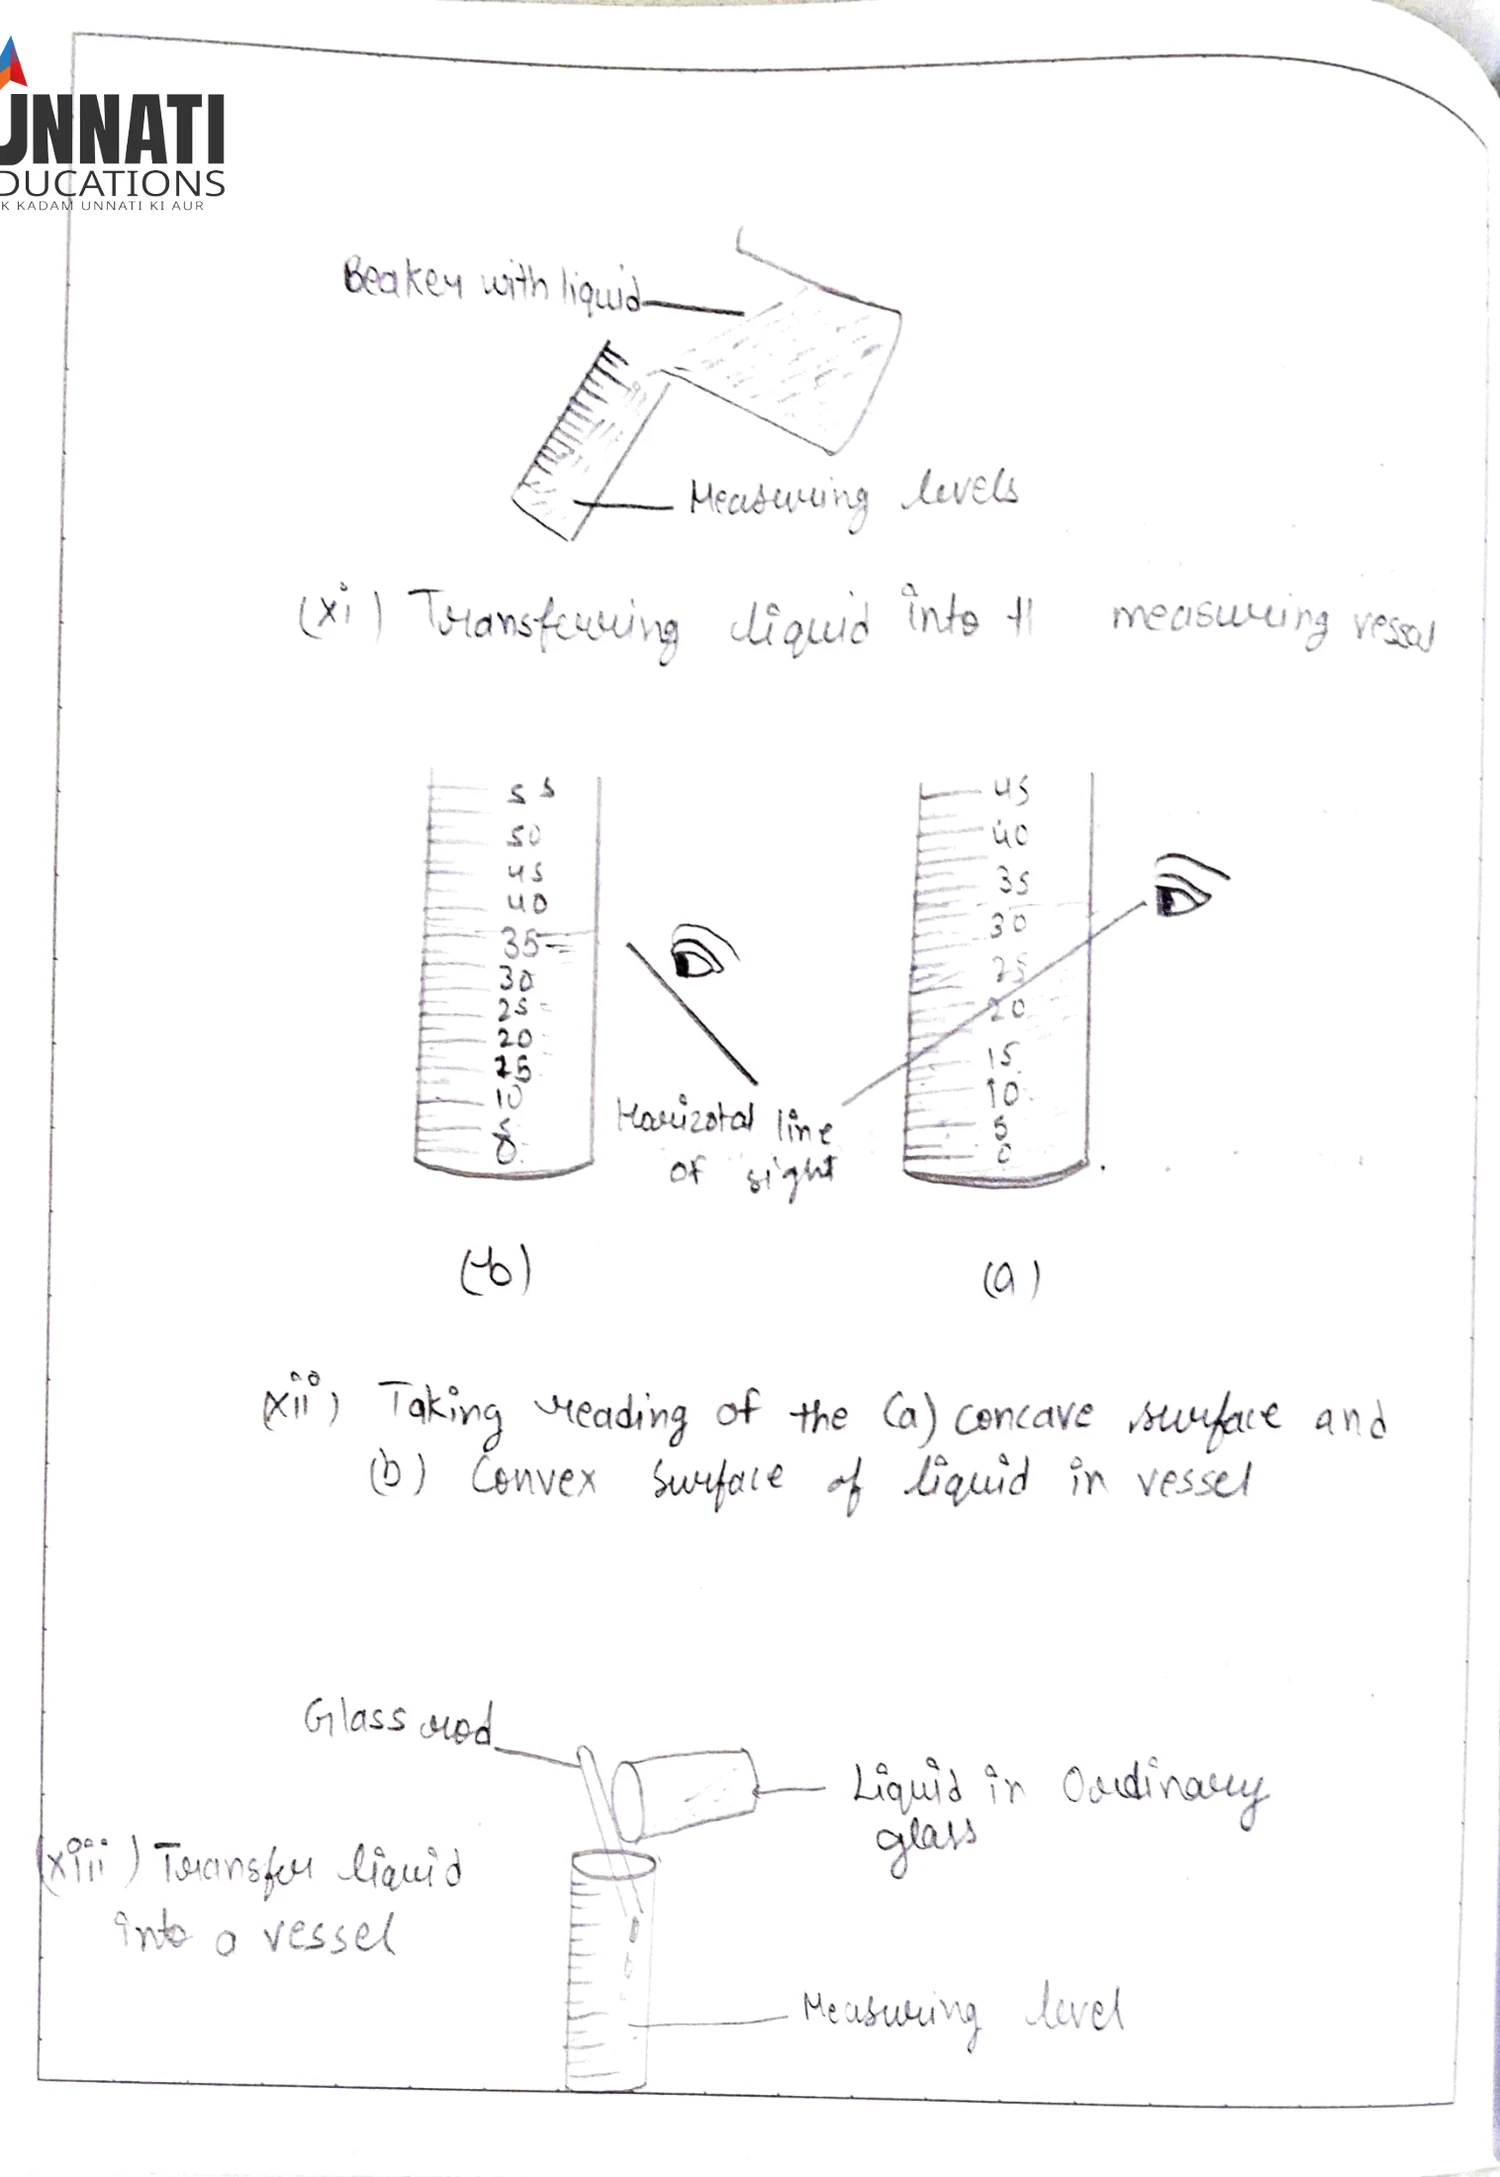 UNNATI
DUCATIONS
K KADAM UNNATI KI AUR
Beaker with liquid
Measuring levels
(xi) Transferring liquid into measuring vessal
55
50
45
40
35
30
25
20
15
10
5
0
45
40
35
30
25
20
15
10
5
0
Horizotal line
of sight
(b)
(a)
(xii) Taking reading of the (a) concave surface and
(b) Convex surface of liquid in vessel
Glass rod
Liquid in Ordinary
glass
(xiii) Transfer liquid
into a vessel
Measuring level